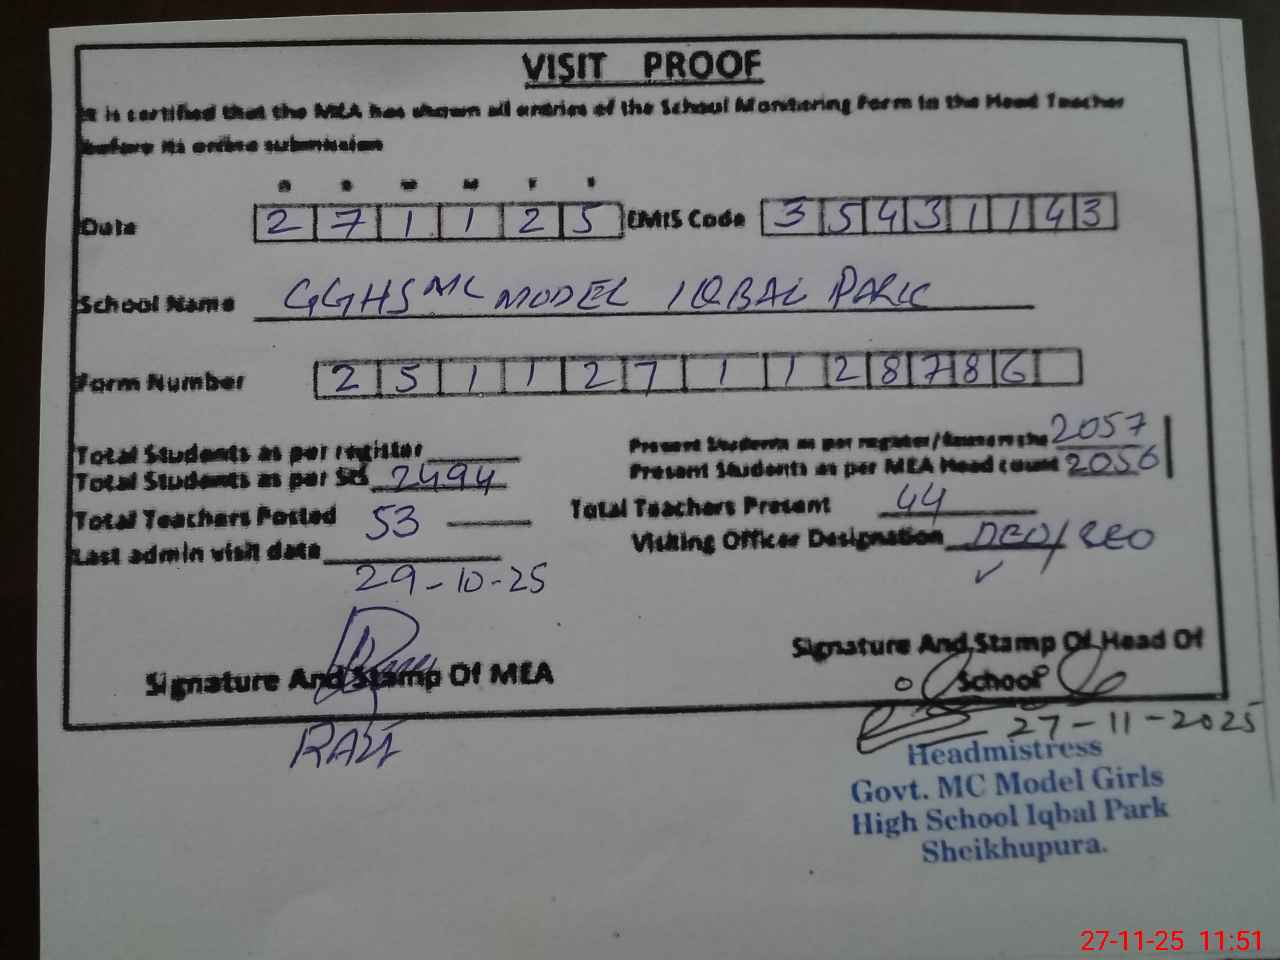 VISIT PROOF
It is certified that the MEA has shown all entries of the School Monitoring Form to the Head Teacher
before its online submission
Date 2 7 1 1 2 5 EMIS Code 3 5 4 3 1 1 4 3
School Name GGHS MC MODEL IQBAL PARK
Form Number 2 5 1 1 2 7 1 1 2 8 7 8 6
Total Students as per register Present Students as per register/ 2057
Total Students as per SIS 2494 Present Students as per MEA Head count 2056
Total Teachers Posted 53 Total Teachers Present 44
Last admin visit date 29-10-25 Visiting Officer Designation DEO/CEO
Signature And Stamp Of MEA
Signature And Stamp Of Head Of
School
27-11-2025
Headmistress
Govt. MC Model Girls
High School Iqbal Park
Sheikhupura.
27-11-25 11:51